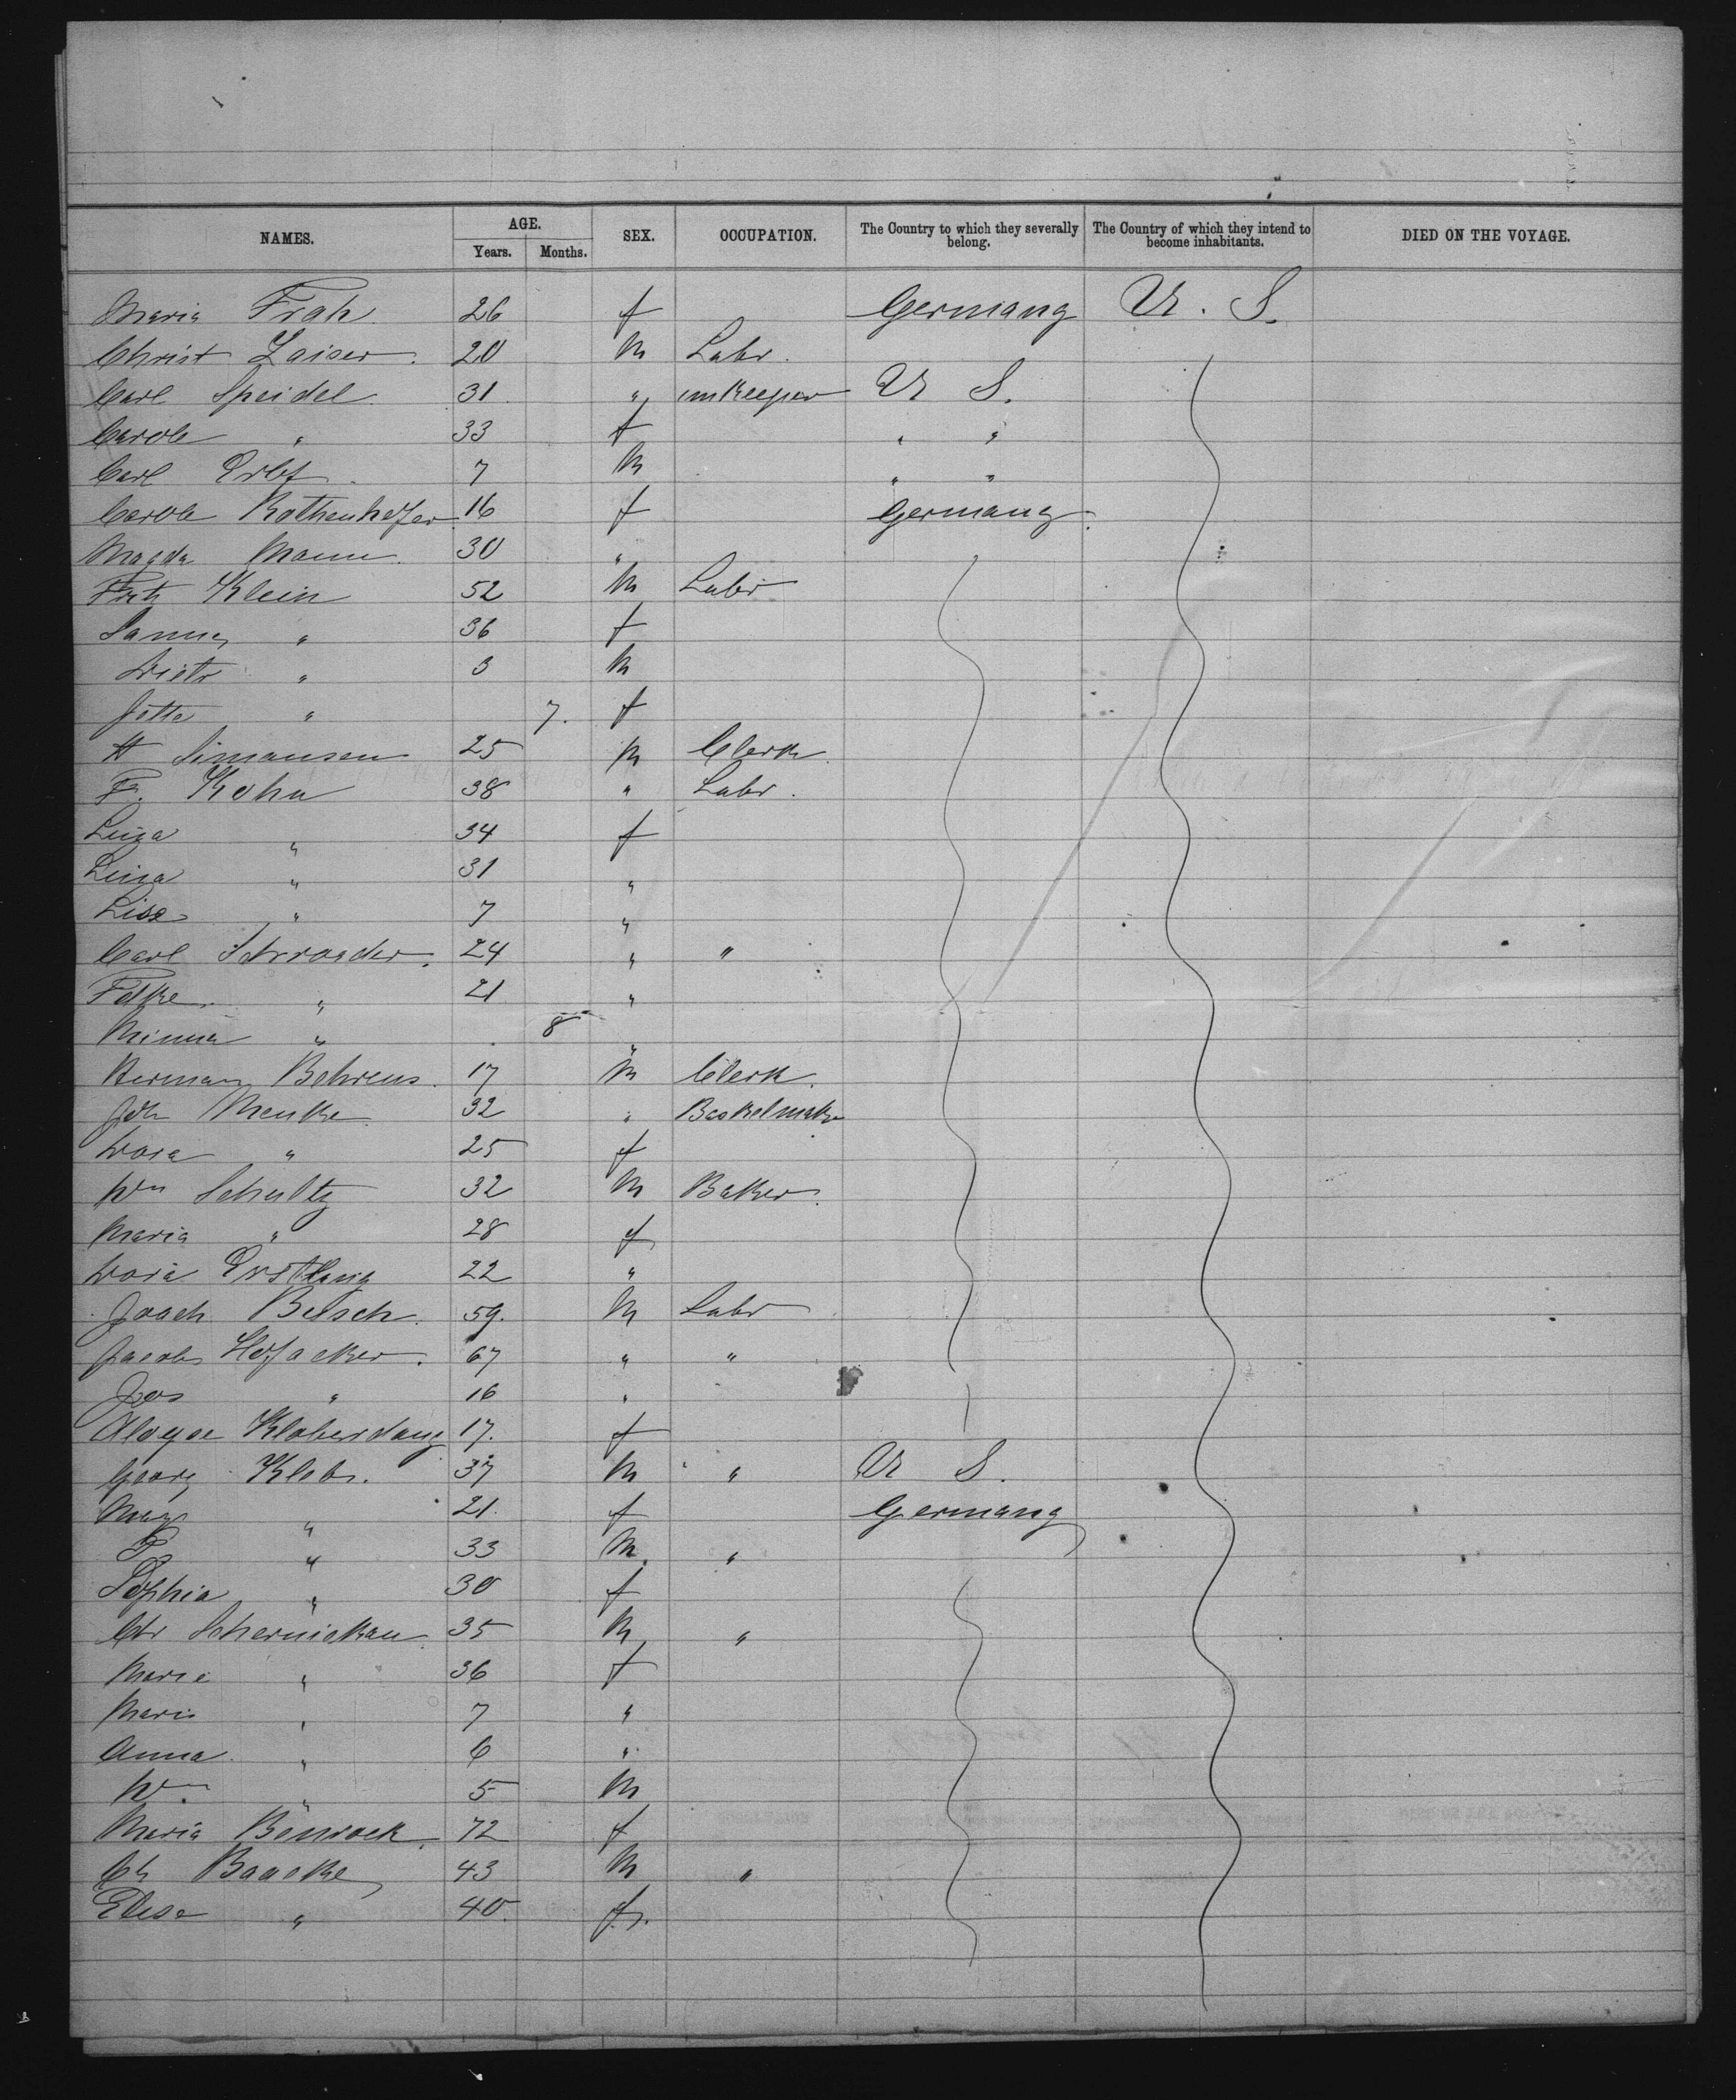 NAMES. AGE. SEX. OCCUPATION. The Country to which they severally belong. The Country of which they intend to become inhabitants. DIED ON THE VOYAGE.
Years. Months.
Maria Frah 26 f Germany U. S.
Christ Zaiser 20 m Labr.
Carl Speidel 31 " innkeeper U S.
Carole " 33 f " "
Carl 7 m " "
Carole Rothenhofer 16 f Germany
Magda Mann 30 "
Fritz Klein 52 m Labr
" 36 f
Dietr " 3 m
Jette " 7. f
H Simonsen 25 m Clerk
F. Kohn 38 " Labr.
Luiza " 34 f
Lina " 31 "
Lise " 7 "
Carl Schroeder. 24 " "
" 21 "
Minna " 8 "
Herman Behrens 17 m Clerk.
Joh Menke 32 " Basketmaker
Dora " 25 f
Wm Schultz 32 m Baker
Maria " 28 f
Dora 22 "
Joach 59. m Labr
Jacob Hofacker. 67 " "
Jos " 16 "
Kloberdanz 17. f
Georg Klebs. 37 m " U S.
Mary " 21. f Germany
" 33 m "
Sophia " 30 f
Chr Schernickau 35 m "
Maria " 36 f
Maria " 7 "
Anna " 6 "
Wm " 5 m
Maria 72 f
Ch Baacke 43 m "
Elise " 40. f.